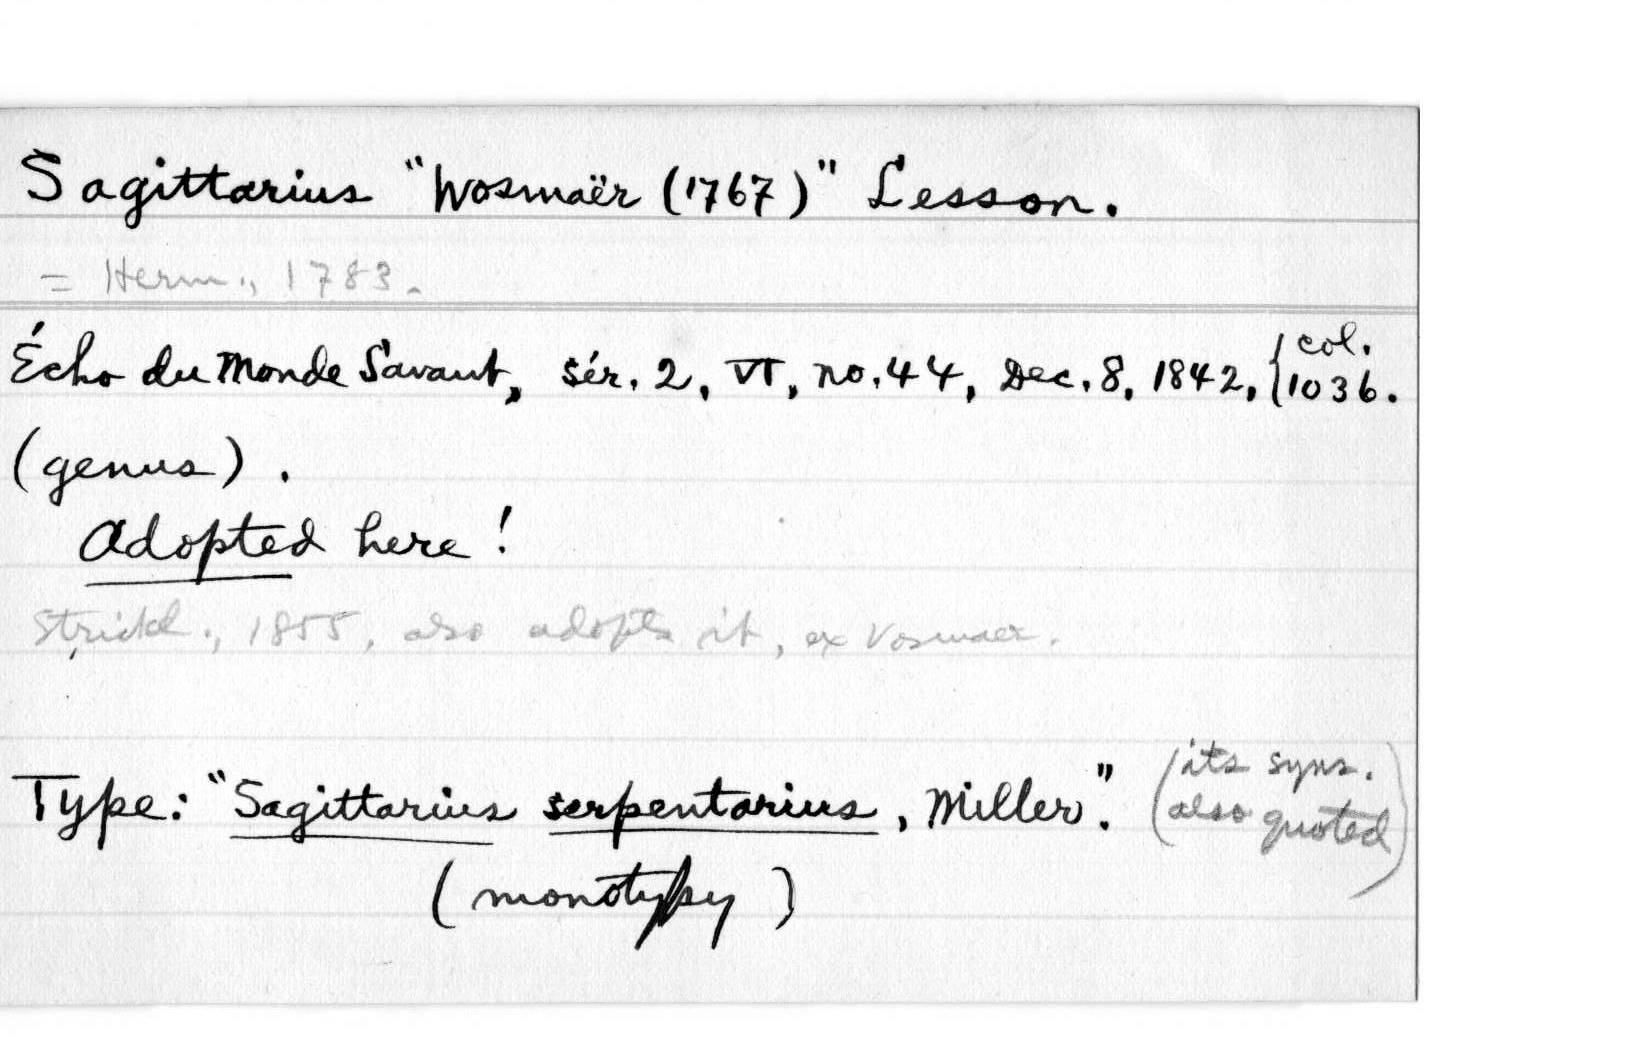 Sagittarius "Wosmaër (1767)" Lesson.
= Herm., 1783.
Écho du Monde Savant, sér. 2, VI, no. 44, Dec. 8, 1842, { col. 1036.
(genus).
Adopted here!
Strickl., 1855, also adopts it, ex Vosmaer.
Type: "Sagittarius serpentarius, Miller". (its syns. also quoted)
(monotypy)